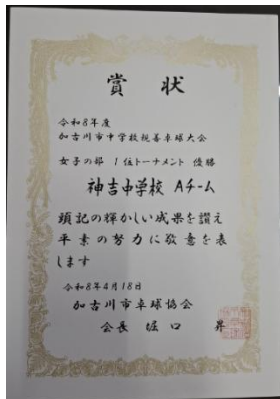 賞状
令和8年度
加古川市中学校親善卓球大会
女子の部 1位トーナメント 優勝
神吉中学校 Aチーム
頭記の輝かしい成果を讃え
平素の努力に敬意を表
します
令和8年4月18日
加古川市卓球協会
会長 堀口 昇